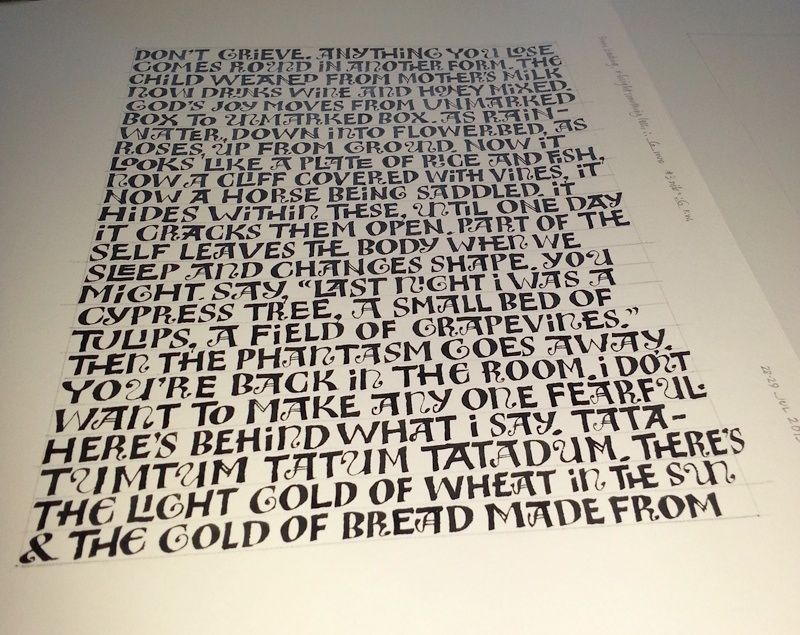 DON'T GRIEVE. ANYTHING YOU LOSE
COMES ROUND IN ANOTHER FORM. THE
CHILD WEANED FROM MOTHER'S MILK
NOW DRINKS WINE AND HONEY MIXED.
GOD'S JOY MOVES FROM UNMARKED
BOX TO UNMARKED BOX. AS RAIN-
WATER, DOWN INTO FLOWERBED, AS
ROSES, UP FROM GROUND. NOW IT
LOOKS LIKE A PLATE OF RICE AND FISH,
NOW A CLIFF COVERED WITH VINES, IT
NOW A HORSE BEING SADDLED. IT
HIDES WITHIN THESE, UNTIL ONE DAY
IT CRACKS THEM OPEN. PART OF THE
SELF LEAVES THE BODY WHEN WE
SLEEP AND CHANGES SHAPE. YOU
MIGHT SAY, "LAST NIGHT I WAS A
CYPRESS TREE, A SMALL BED OF
TULIPS, A FIELD OF GRAPEVINES."
THEN THE PHANTASM GOES AWAY.
YOU'RE BACK IN THE ROOM. I DON'T
WANT TO MAKE ANY ONE FEARFUL.
HERE'S BEHIND WHAT I SAY. TATA-
TUMTUM TATUM TATADUM. THERE'S
THE LIGHT GOLD OF WHEAT IN THE SUN
& THE GOLD OF BREAD MADE FROM